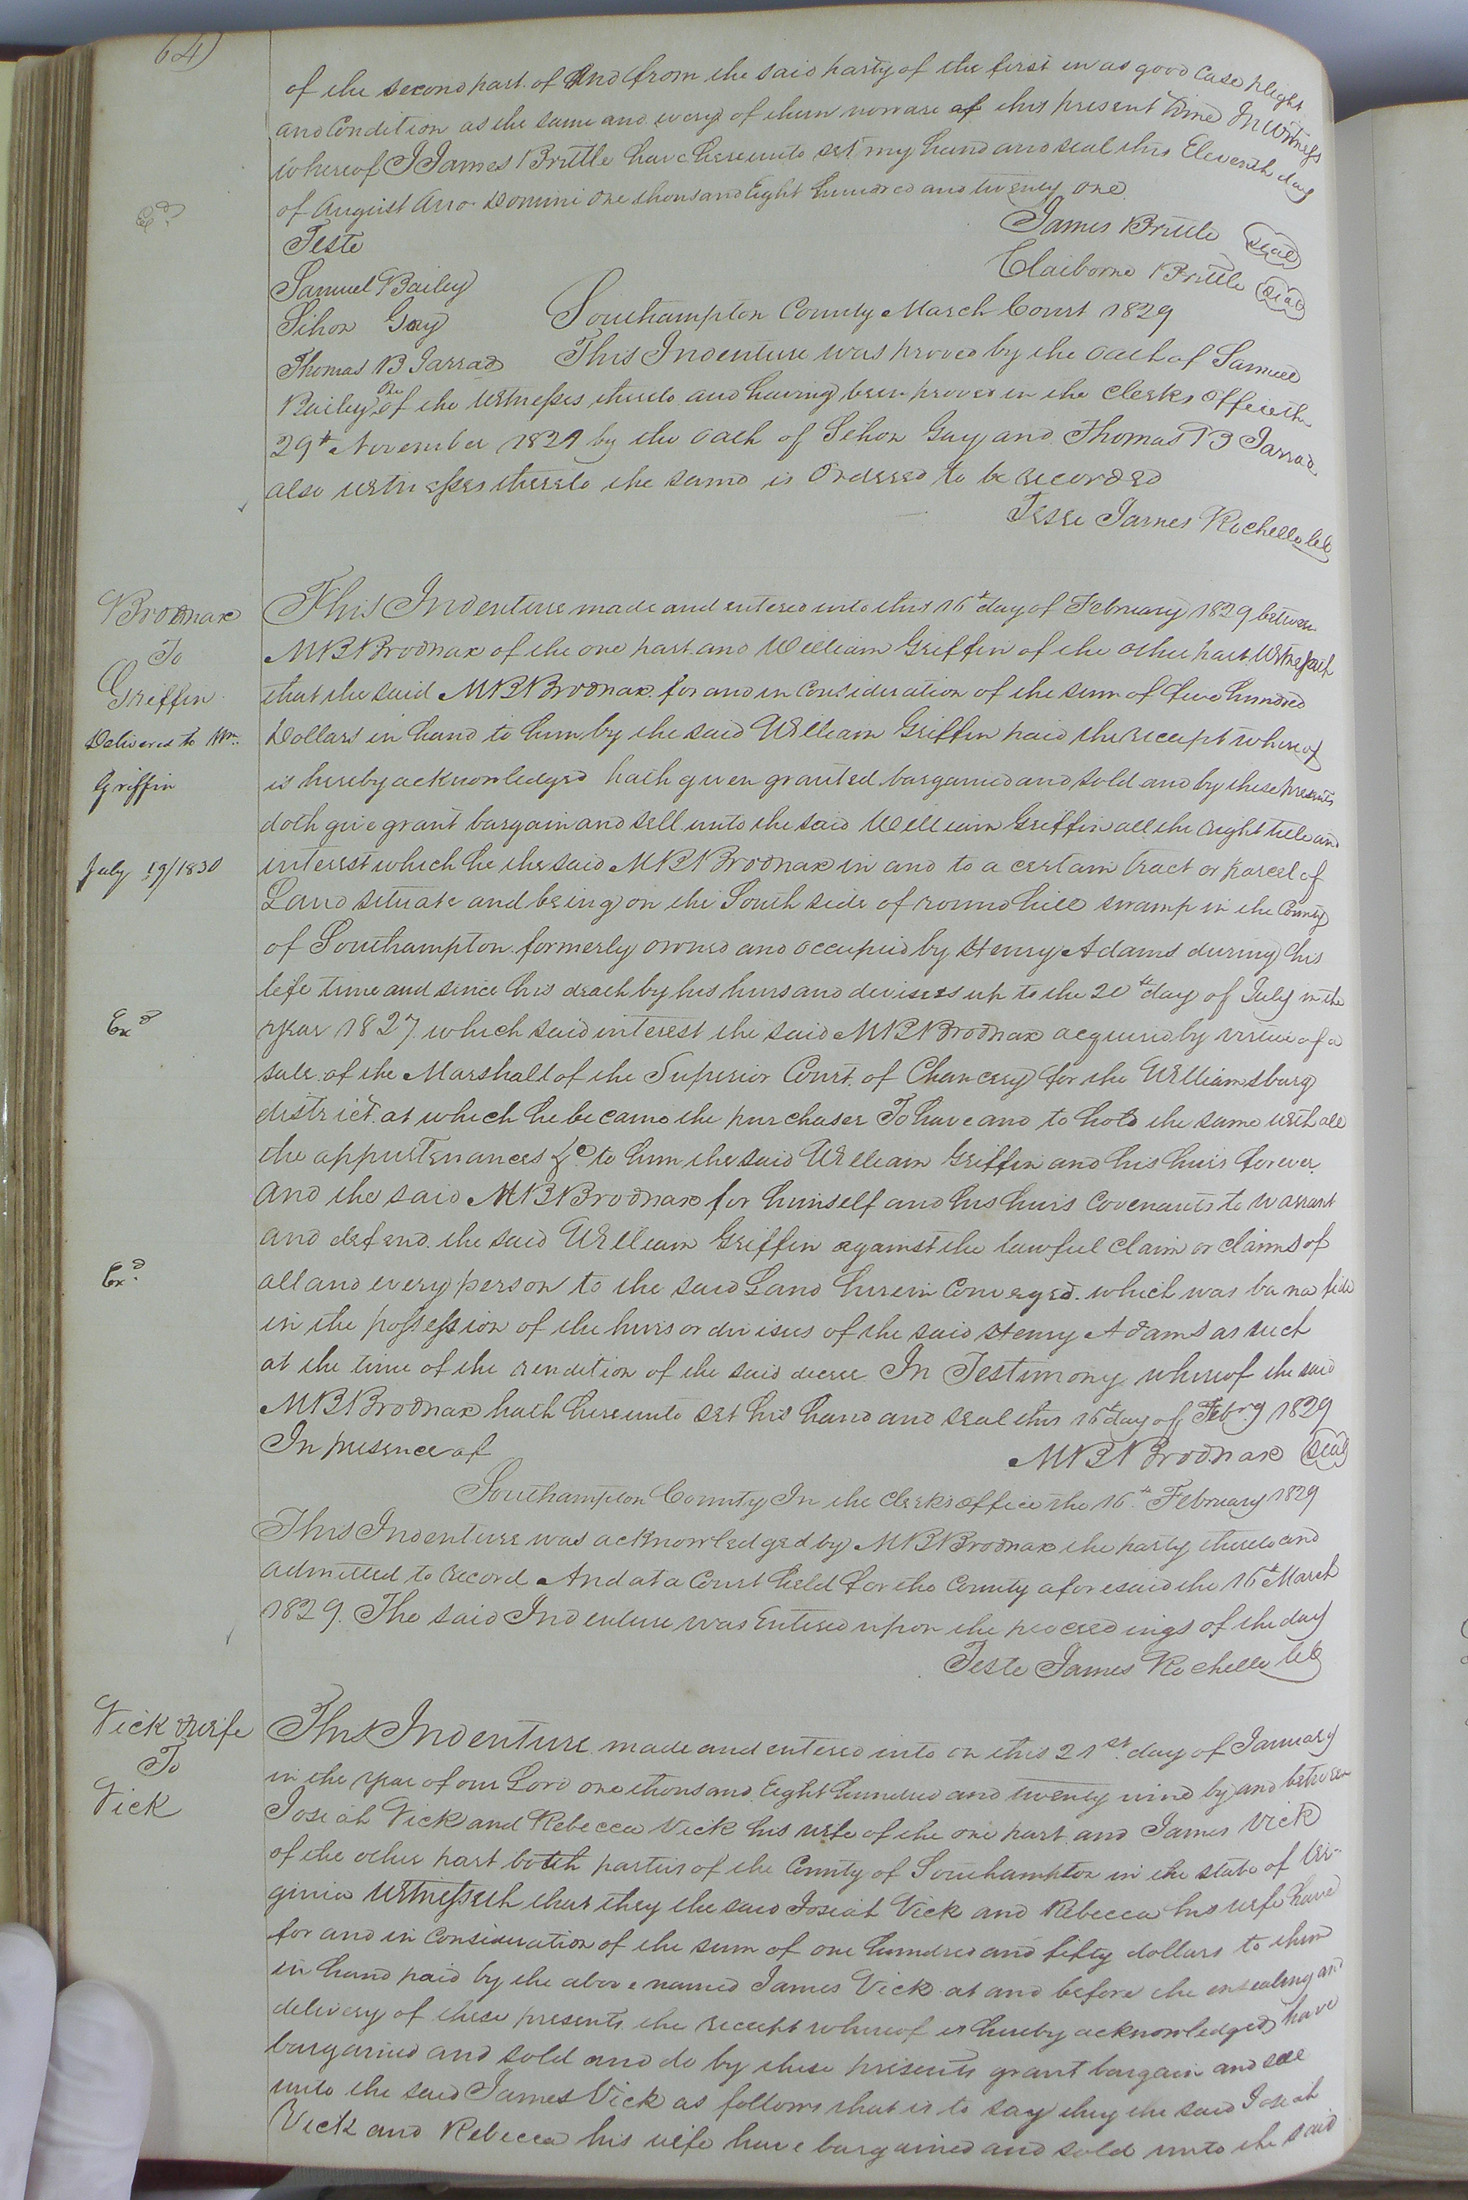 64)
of the second part of And from the said party of the first in as good Case plight
and Condition as the same and every of them now are at this present time In witness
whereof I James Brittle have hereunto set my hand and seal this Eleventh day
of August Anno Domini One thousand Eight hundred and twenty one
Exd
Teste
James Brittle seal
Samuel Bailey
Claiborne Brittle seal
Sihon Gay
Southampton County March Court 1829
Thomas B Jarrad
This Indenture was proved by the oath of Samuel
Bailey one of the witnesses thereto and having been proved in the Clerks Office the
29th November 1821 by the oath of Sihon Gay and Thomas B Jarrad
also witnesses thereto the same is Ordered to be recorded
Teste James Rochelle Clk
Brodnax
To
Griffin
Delivered to Wm.
Griffin
July 19/1830
Exd
Exd
This Indenture made and entered into this 16th day of February 1829 between
M B Brodnax of the one part and William Griffin of the other part Witnesseth
that the said M B Brodnax for and in Consideration of the sum of five hundred
Dollars in hand to him by the said William Griffin paid the receipt whereof
is hereby acknowledged hath given granted bargained and sold and by these presents
doth give grant bargain and sell unto the said William Griffin all the right title and
interest which he the said M B Brodnax in and to a certain tract or parcel of
Land situate and being on the South side of round hill swamp in the County
of Southampton formerly owned and occupied by Henry Adams during his
life time and since his death by his heirs and devisees up to the 20th day of July in the
year 1827 which said interest the said M B Brodnax acquired by virtue of a
sale of the Marshall of the Superior Court of Chancery for the Williamsburg
district at which he became the purchaser To have and to hold the same with all
the appurtenances &c to him the said William Griffin and his heirs forever
And the said M B Brodnax for himself and his heirs Covenants to warrant
and defend the said William Griffin against the lawful claim or claims of
all and every person to the said Land herein Conveyed which was bona fide
in the possession of the heirs or devisees of the said Henry Adams as such
at the time of the rendition of the said decree In Testimony whereof the said
M B Brodnax hath hereunto set his hand and seal this 16th day of Febry 1829
In presence of
M B Brodnax seal
Southampton County In the Clerks office the 16th February 1829
This Indenture was acknowledged by M B Brodnax the party thereto and
admitted to record And at a Court held for the County aforesaid the 16th March
1829. The said Indenture was Entered upon the proceedings of the day
Teste James Rochelle Clk
Vick & wife
To
Vick
This Indenture made and entered into on this 21st day of January
in the year of our Lord one thousand Eight hundred and twenty nine by and between
Josiah Vick and Rebecca Vick his wife of the one part and James Vick
of the other part both parties of the County of Southampton in the state of Vir-
ginia Witnesseth that they the said Josiah Vick and Rebecca his wife have
for and in Consideration of the sum of one hundred and fifty dollars to them
in hand paid by the above named James Vick at and before the ensealing and
delivery of these presents the receipt whereof is hereby acknowledged have
bargained and sold and do by these presents grant bargain and sell
unto the said James Vick as follows that is to say they the said Josiah
Vick and Rebecca his wife have bargained and sold unto the said